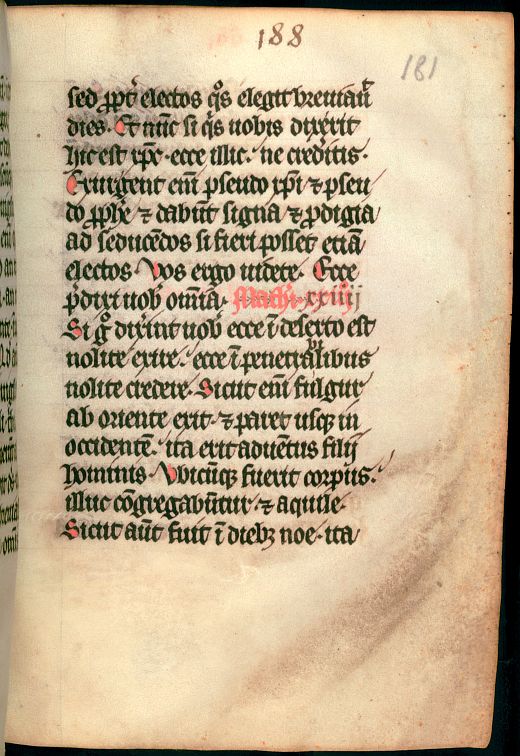 188
181
sed ꝓpt̄ electos q̊s elegit breuiauͥt
dies. Et nūc si q̊s uobis dixerit
hic est xp̄c · ecce illic · ne creditis ·
Exurgent eīm pseudo xp̄i ⁊ pseu
do ꝓph̄e ⁊ dabūt signa ⁊ ꝓdigia
ad seducēdos si fieri posset etiā
electos · Vos ergo uidete · Ecce
p̄dixi uob̄ om̄ia · Mathi · xxiiij
Si g̊ dixīnt uob̄ ecce ī deserto est
nolite exire · ecce ī penetralibus
nolite credere · Sicut eīm fulgur
ab oriente exit · ⁊ paret usq̨ in
occidentē · ita erit aduētus filij
hominis · Vbicūq̨ fuerit corpus ·
illuc cōgregabūtur · ⁊ aquile ·
Sicut aūt fuit ī diebꝫ noe · ita